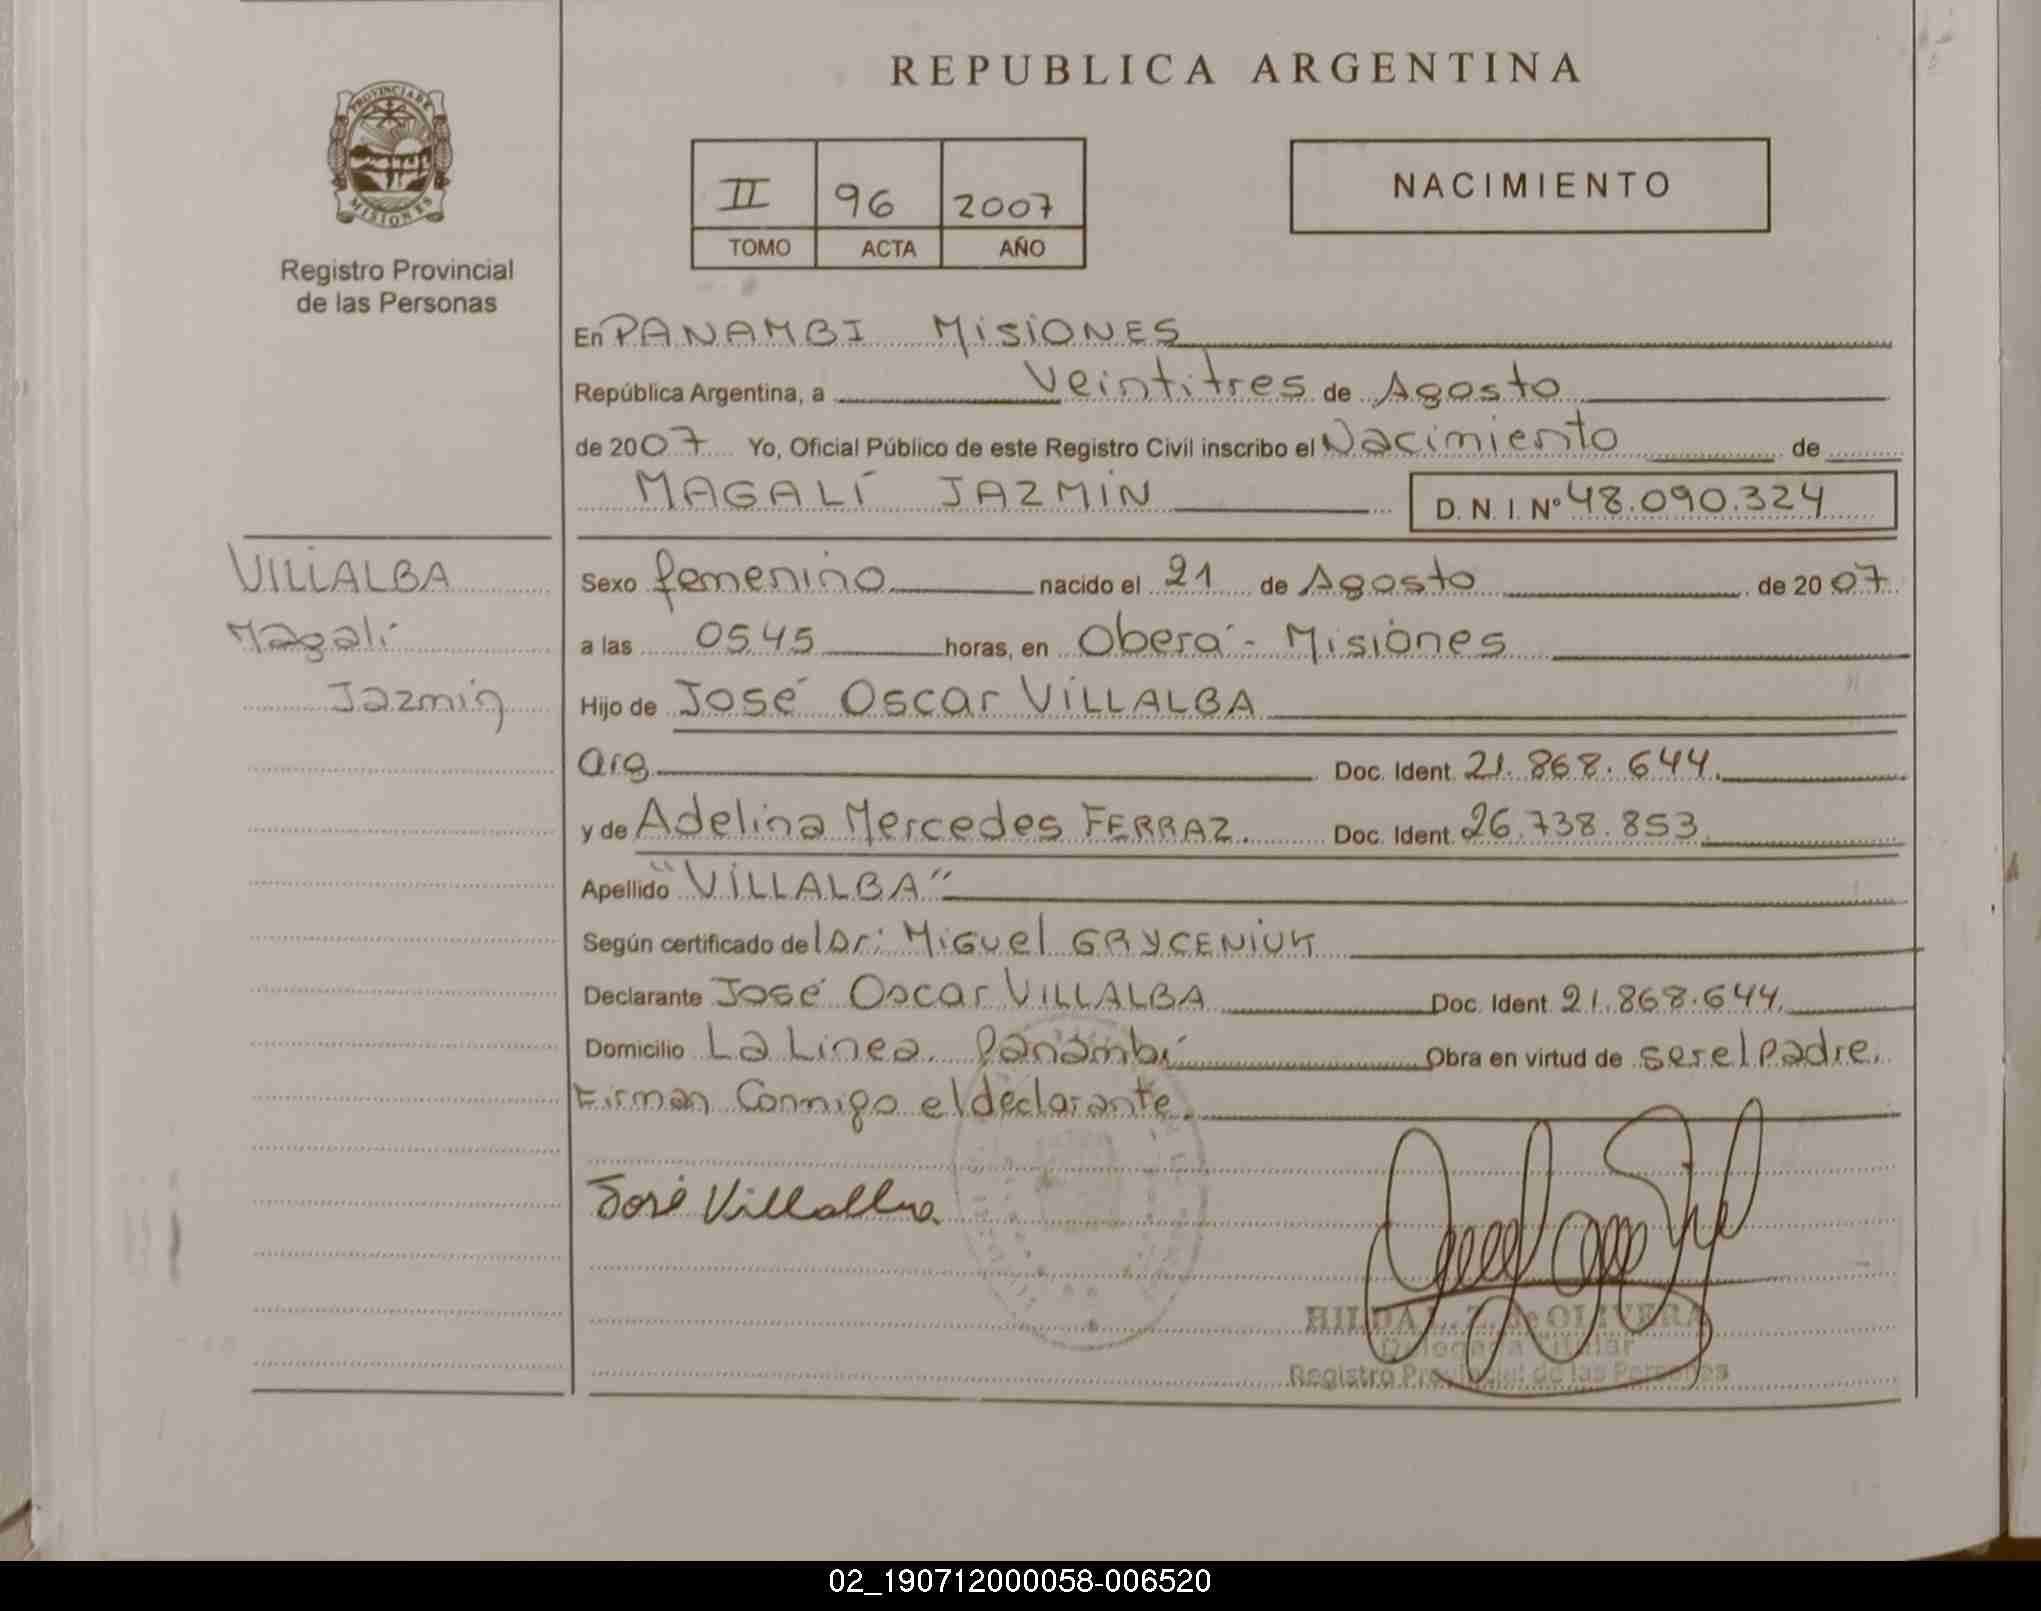 REPUBLICA ARGENTINA
PROVINCIA DE
MISIONES
Registro Provincial
de las Personas
II 96 2007
TOMO ACTA AÑO
NACIMIENTO
En PANAMBI MISIONES
República Argentina, a Veintitres de Agosto
de 2007 Yo, Oficial Público de este Registro Civil inscribo el Nacimiento de
MAGALÍ JAZMIN D.N.I. Nº 48.090.324
VILLALBA
Magalí
Jazmin
Sexo femenino nacido el 21 de Agosto de 2007
a las 0545 horas, en Oberá - Misiones
Hijo de José Oscar VILLALBA
arg Doc. Ident. 21.868.644.
y de Adelina Mercedes FERRAZ. Doc. Ident. 26.738.853
Apellido "VILLALBA"
Según certificado del Dr: Miguel GRYCENIUK
Declarante José Oscar VILLALBA Doc. Ident. 21.868.644.
Domicilio La Linea Panambí Obra en virtud de ser el Padre.
Firman Conmigo el declarante.
José Villalba.
HILDA L. Z. de OLIVERA
Delegada Titular
Registro Provincial de las Personas
02_190712000058-006520